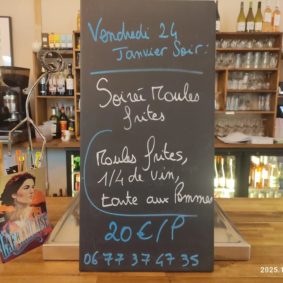 Vendredi 24
Janvier Soir:
Soirée Moules
frites
Moules frites,
1/4 de vin,
tarte aux Pommes
20€/P
06 77 37 47 35
2025.